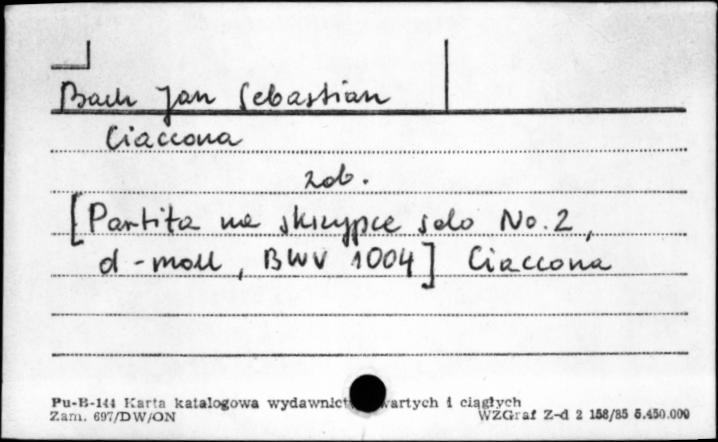 Bach Jan Sebastian
Ciaccona
zob.
[Partita na skrzypce solo No. 2,
d-moll, BWV 1004] Ciaccona
Pu-B-144 Karta katalogowa wydawnict wartych i ciągłych
Zam. 697/DW/ON WZGraf Z-d 2 158/85 5.450.000